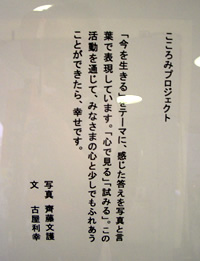 こころみプロジェクト
「今を生きる」をテーマに、感じた答えを写真と言
葉で表現しています。「心で見る」「試みる」。この
活動を通じて、みなさまの心と少しでもふれあう
ことができたら、幸せです。
写真 齊藤文護
文 古屋利幸